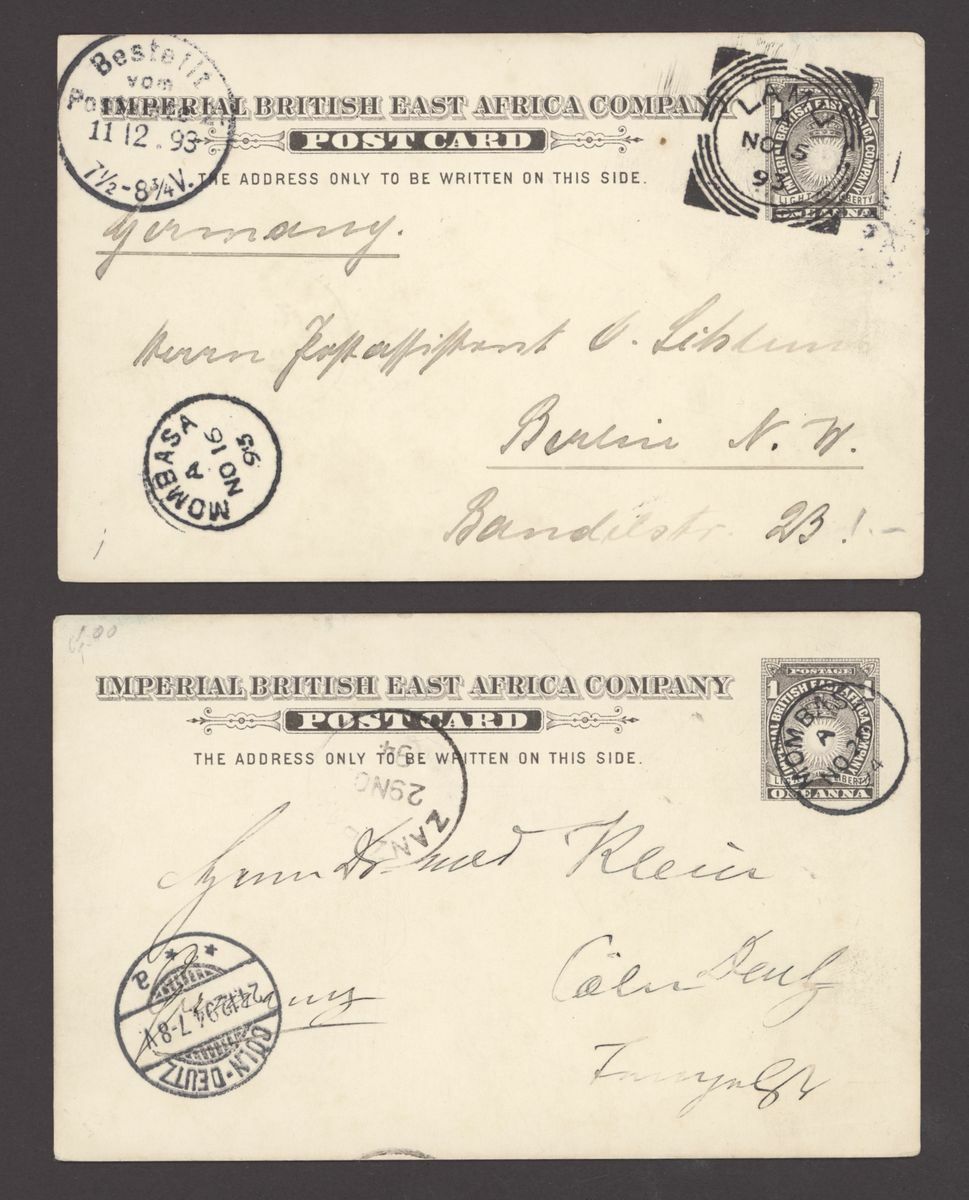 Bestellt
vom
Postamte
11 12. 93
7½-8¾V.
IMPERIAL BRITISH EAST AFRICA COMPANY
POST CARD
THE ADDRESS ONLY TO BE WRITTEN ON THIS SIDE.
LAMU
NO 5
93
1 1
IMPERIAL BRITISH EAST AFRICA COMPANY
LIGHT LIBERTY
ONE ANNA
Germany.
Herrn Postassistent O.
Berlin N. W.
23!
MOMBASA
A
NO 16
93
1,00
IMPERIAL BRITISH EAST AFRICA COMPANY
POST CARD
THE ADDRESS ONLY TO BE WRITTEN ON THIS SIDE.
POSTAGE
1 1
IMPERIAL BRITISH EAST AFRICA COMPANY
LIGHT LIBERTY
ONE ANNA
MOMBASA
A
NO 24
94
ZANZ
29NO
94
Herrn Dr med Klein
Cöln Deutz
Germany
CÖLN-DEUTZ
12.94.7-8V
* * a